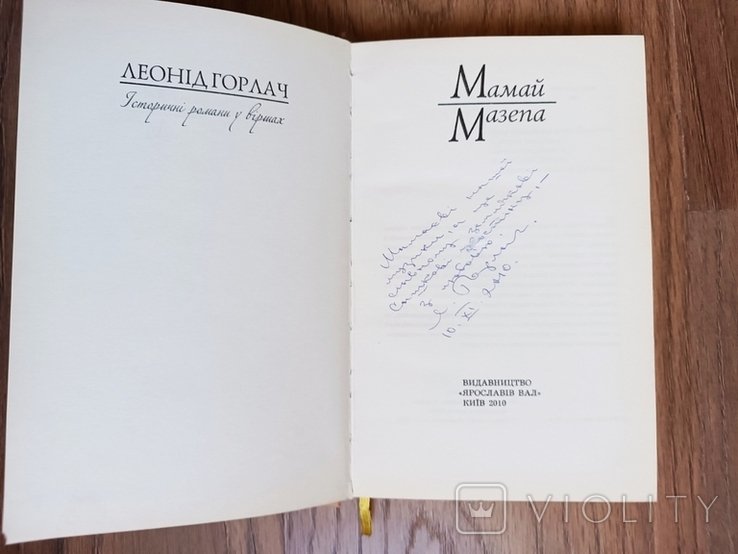 ЛЕОНІД ГОРЛАЧ
Історичні романи у віршах
Мамай
Мазепа
Мамаєві нашої
музики
з любов'ю.
10. XI. 2010.
ВИДАВНИЦТВО
«ЯРОСЛАВІВ ВАЛ»
КИЇВ 2010
VIOLITY